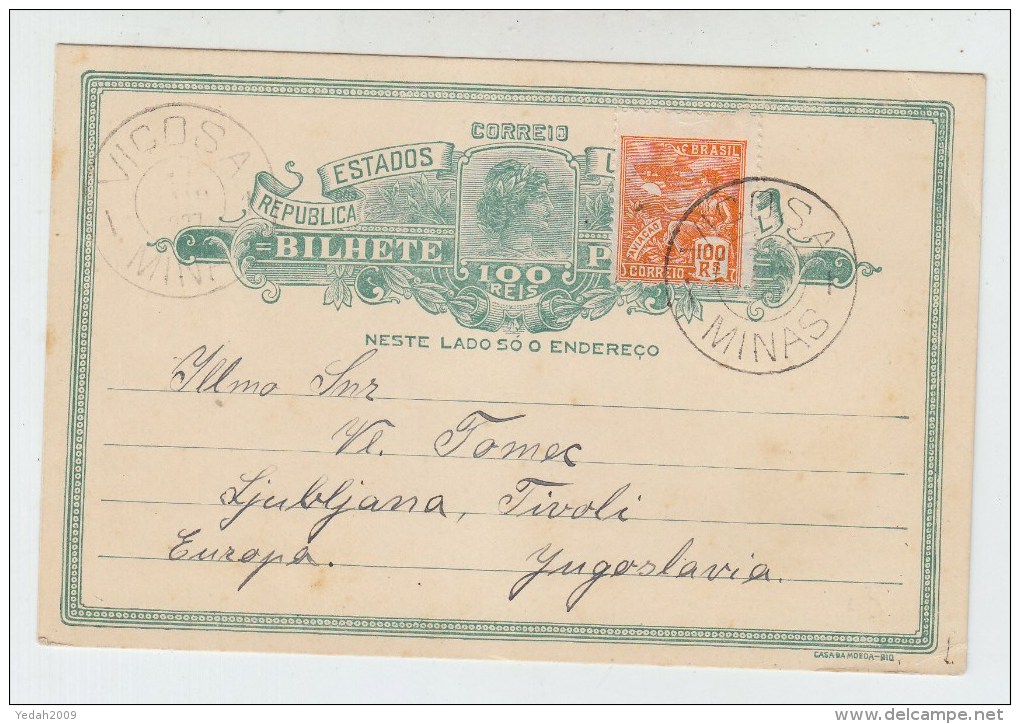 CORREIO
ESTADOS U
REPUBLICA
BILHETE P
100
REIS
BRASIL
AVIAÇÃO
CORREIO
100
RS
VIÇOSA
MINAS
VIÇOSA
MINAS
NESTE LADO SÓ O ENDEREÇO
Illmo Snr
Vl. Tomec
Ljubljana, Tivoli
Europa. Yugoslavia.
CASA DA MOEDA-RIO
Yedah2009
www.delcampe.net